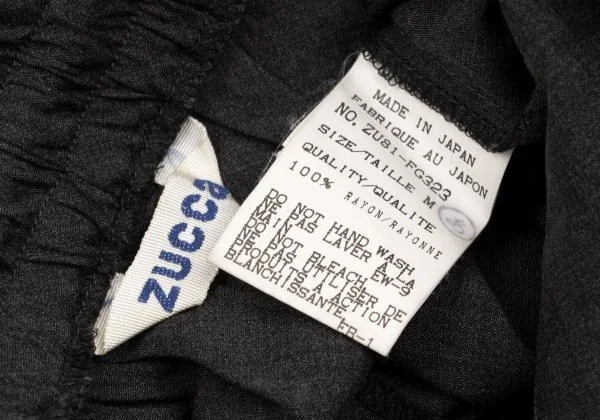 MADE IN JAPAN
FABRIQUE AU JAPON
NO. ZU81-FG323
SIZE/TAILLE M
QUALITY/QUALITE
100% RAYON/RAYONNE
DO NOT HAND WASH
NE PAS LAVER A LA
MAIN EW-9
DO NOT BLEACH
NE PAS UTILISER DE
PRODUITS A ACTION
BLANCHISSANTE
EB-1
zucca